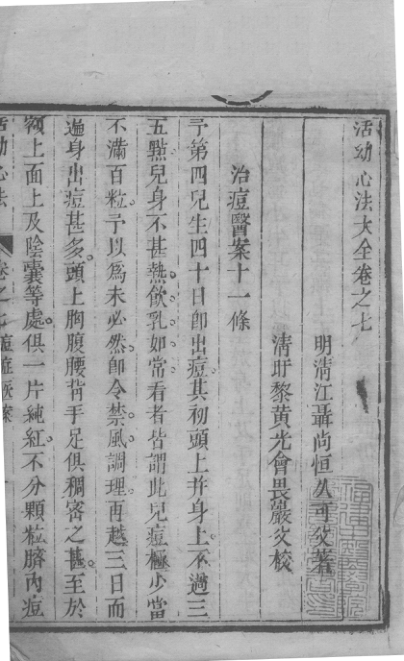 活幼心法大全卷之七
明清江聶尚恒久可父著
清盱黎黃光會畏巖父校
治痘醫案十一條
予第四兒生四十日卽出痘其初頭上并身上不過三
五點兒身不甚熱飲乳如常看者皆謂此兒痘極少當
不滿百粒予以爲未必然卽令禁風調理再越三日而
遍身出痘甚多頭上胸腹腰背手足俱稠密之甚至於
額上面上及陰囊等處俱一片純紅不分顆粒臍內痘
活幼心法 卷之七 痘症醫案